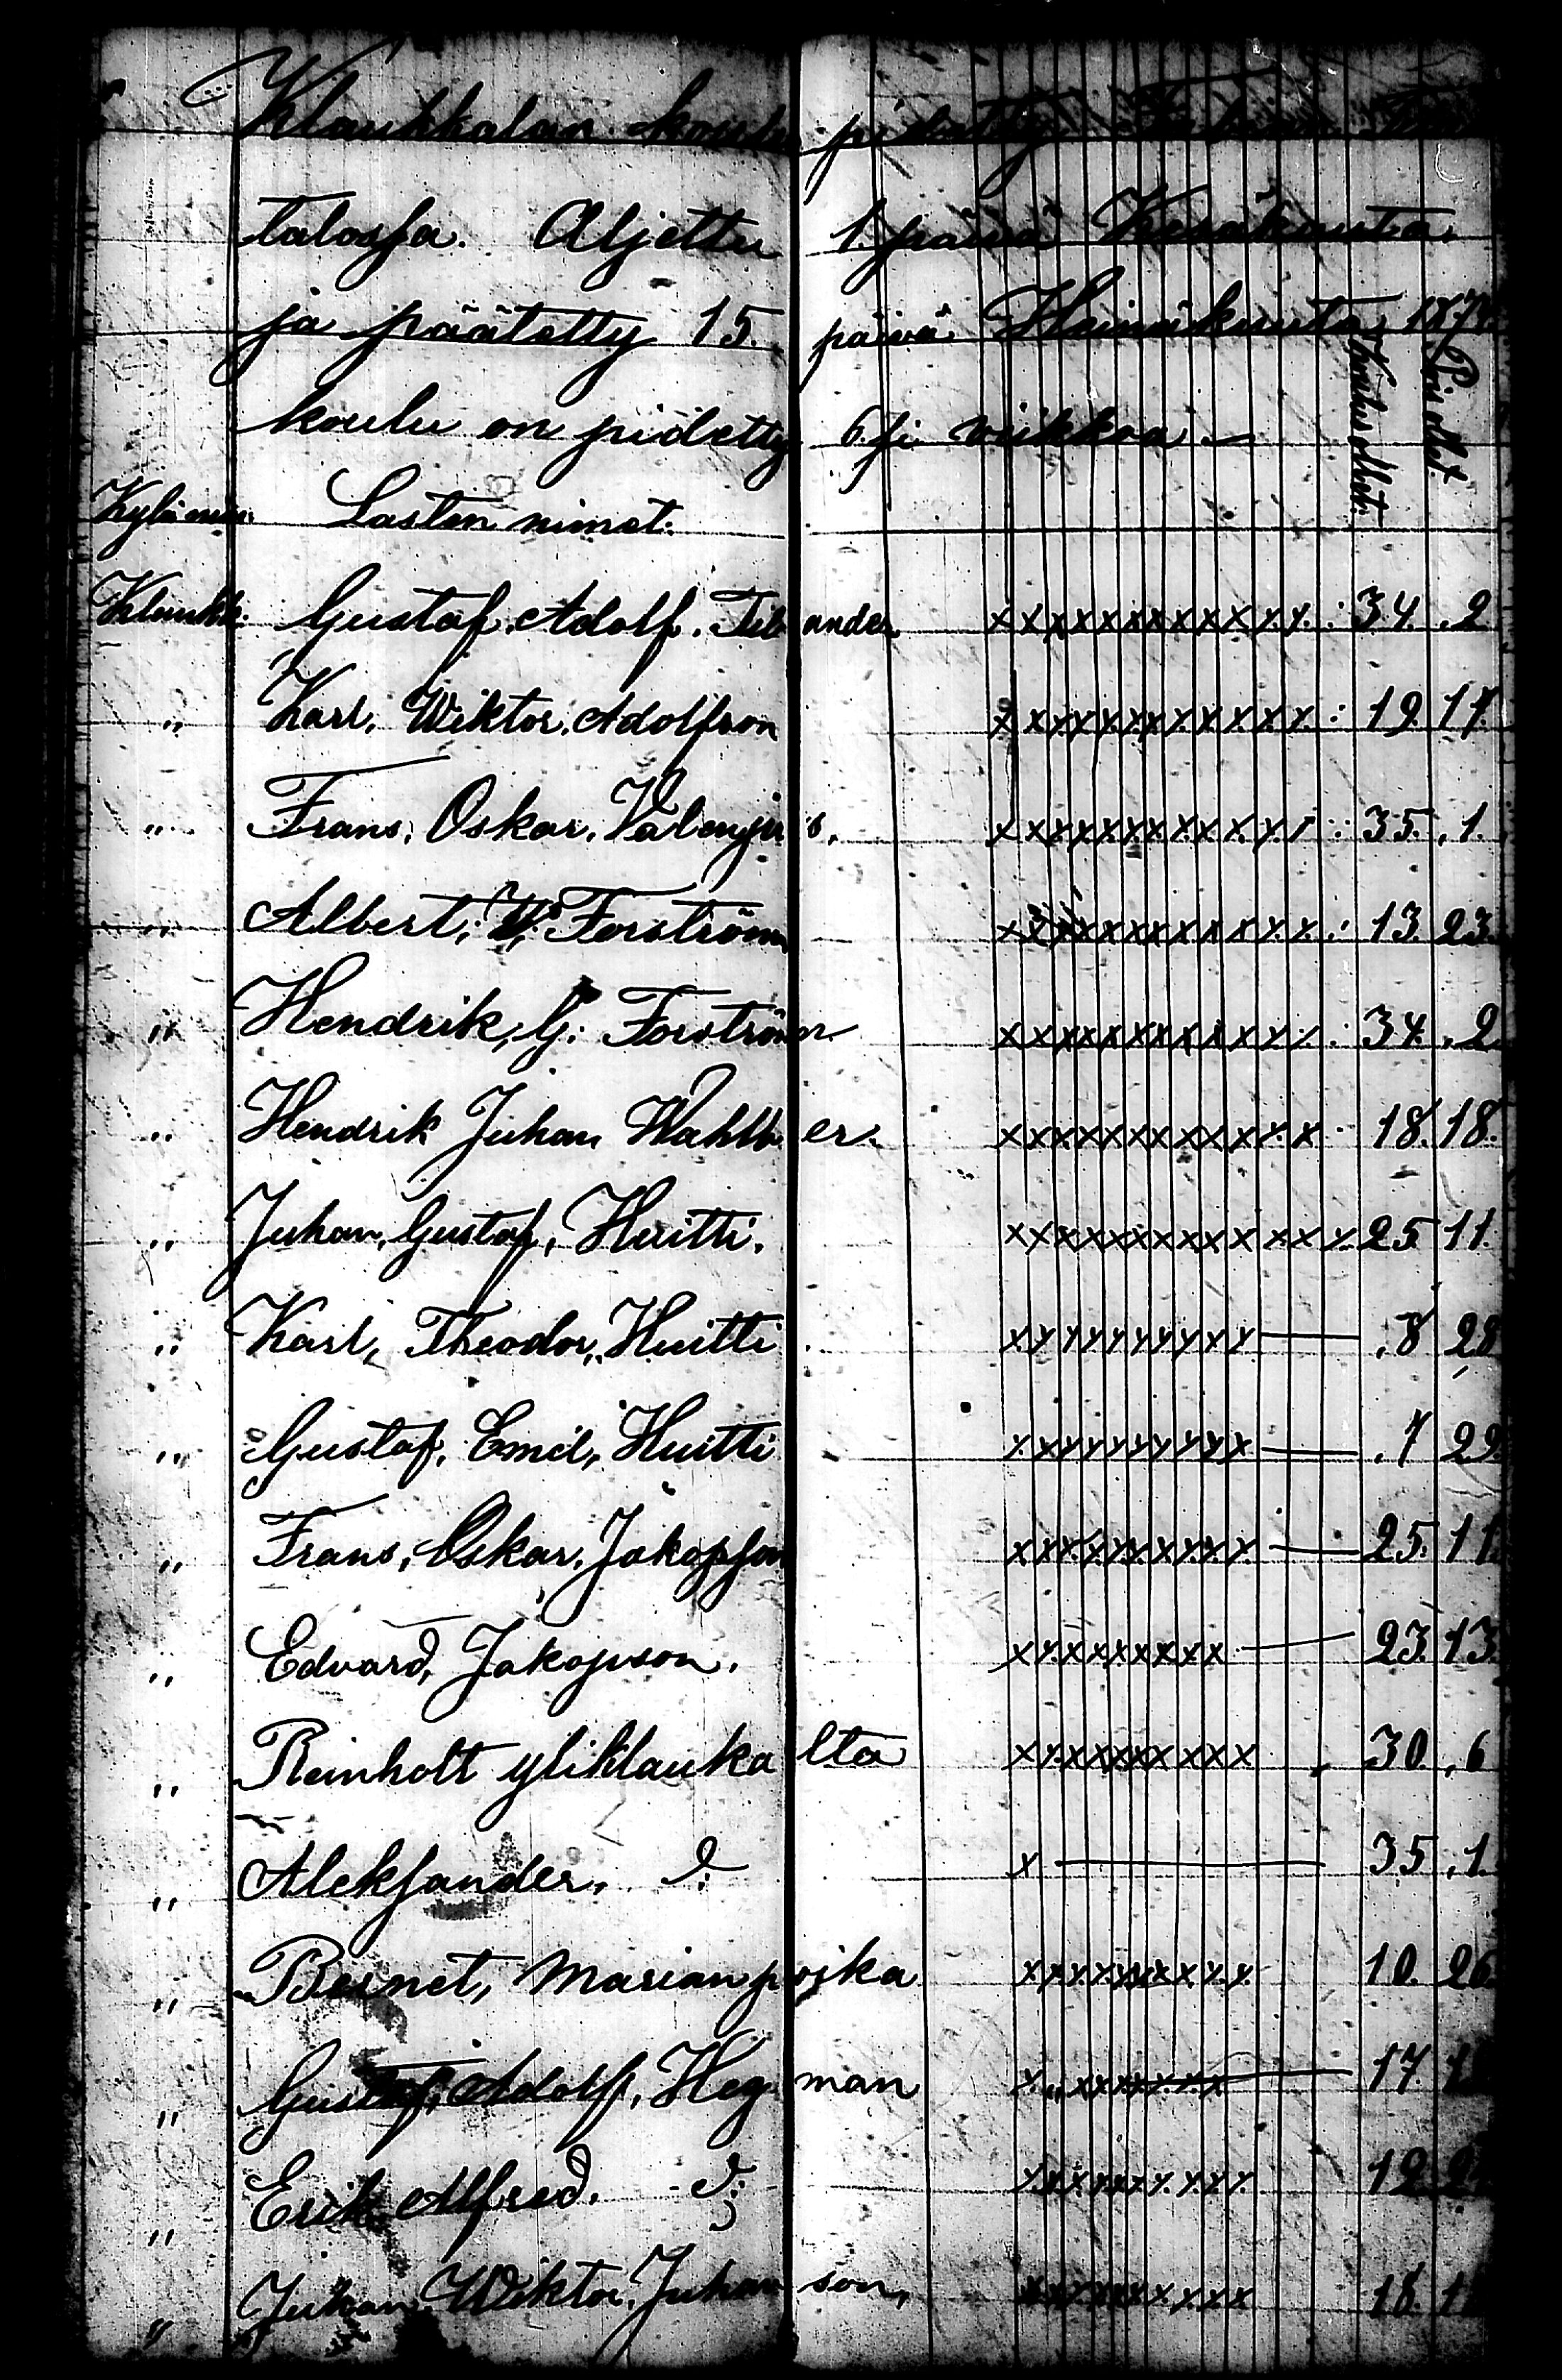 Klaukkalan koulu pidetty
talossa. Aljettu 1. päivä Kesäkuuta
ja päätetty 15. päivä Heinäkuuta 187
koulu on pidetty 6. si viikkoa —
Koulus ollet. Pois ollet.
Kylä nim. Lasten nimet.
Klaukk. Gustaf. Adolf. ander xxxxxxxxxxxxx : 34. .2
" Karl. Wiktor. Adolfson xxxxxxxxxxxxx : 19. 17.
" Frans. Oskar. xxxxxxxxxxxxx : 35. .1.
" Albert. W. Forström xxxxxxxxxxxxx : 13. 23
" Hendrik, G: Forström xxxxxxxxxxxxx : 34. .2
" Hendrik Juhan Wahlb er. xxxxxxxxxxxxx 18. 18.
" Juhan, Gustaf, Huitti. xxxxxxxxxxxxxx 25 11.
" Karl, Theodor, Huitti xxxxxxxxxx — .8 28
" Gustaf. Emil, Huitti xxxxxxxxxx — .7 29
" Frans, Oskar. Jakopson xxxxxxxxxx — 25. 11.
" Edvard, Jakopson. xxxxxxxxx — 23. 13.
" Reinholt yliklauka lta xxxxxxxxxx 30. .6
" Aleksander. d: x — 35 .1.
" Bernet, Marian poika xxxxxxxxxx 10. 26.
" Gustaf. Adolf. Heg man xxxxxxxxx — 17.
" Erik Alfred. d: xxxxxxxxxx 12
" Juhan Wiktor. Juhan son, xxxxxxxxxx 18.